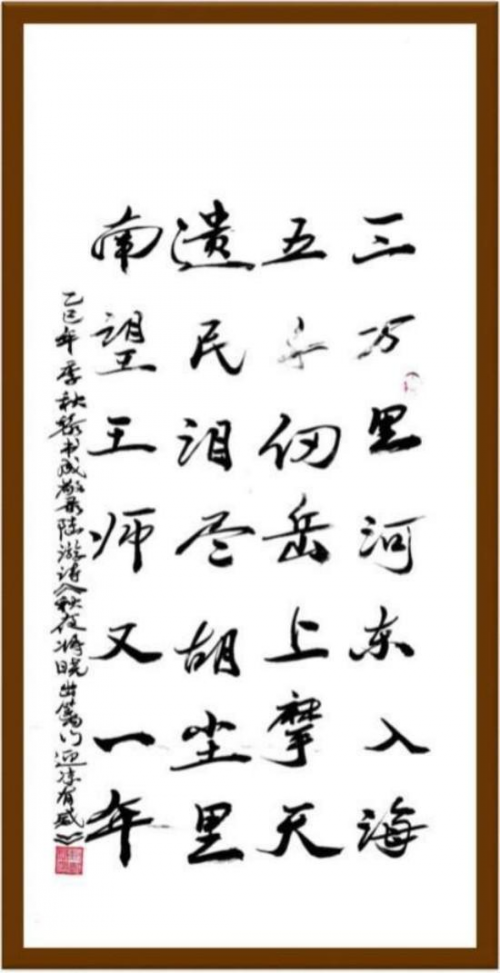 三万里河东入海
五千仞岳上摩天
遗民泪尽胡尘里
南望王师又一年
乙巳年季秋 书成敬录陆游诗《秋夜将晓出篱门迎凉有感》